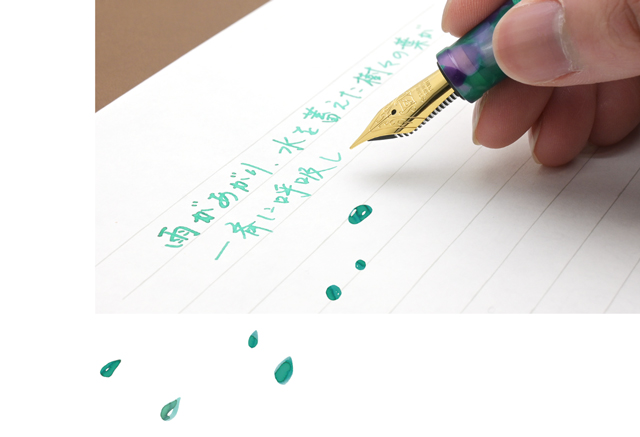 雨があがり、水を蓄えた樹々の葉が
一斉に呼吸し